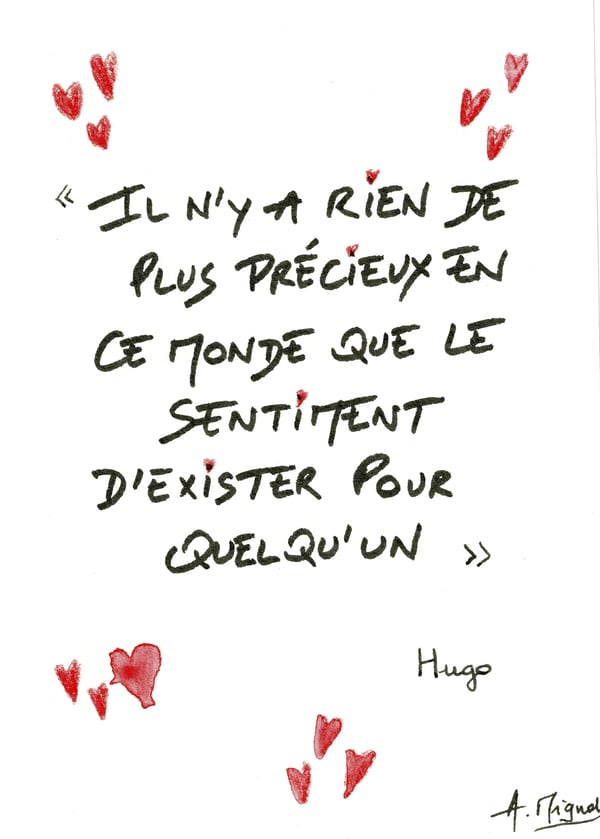 « IL N'Y A RIEN DE
PLUS PRÉCIEUX EN
CE MONDE QUE LE
SENTIMENT
D'EXISTER POUR
QUELQU'UN »
Hugo
A.